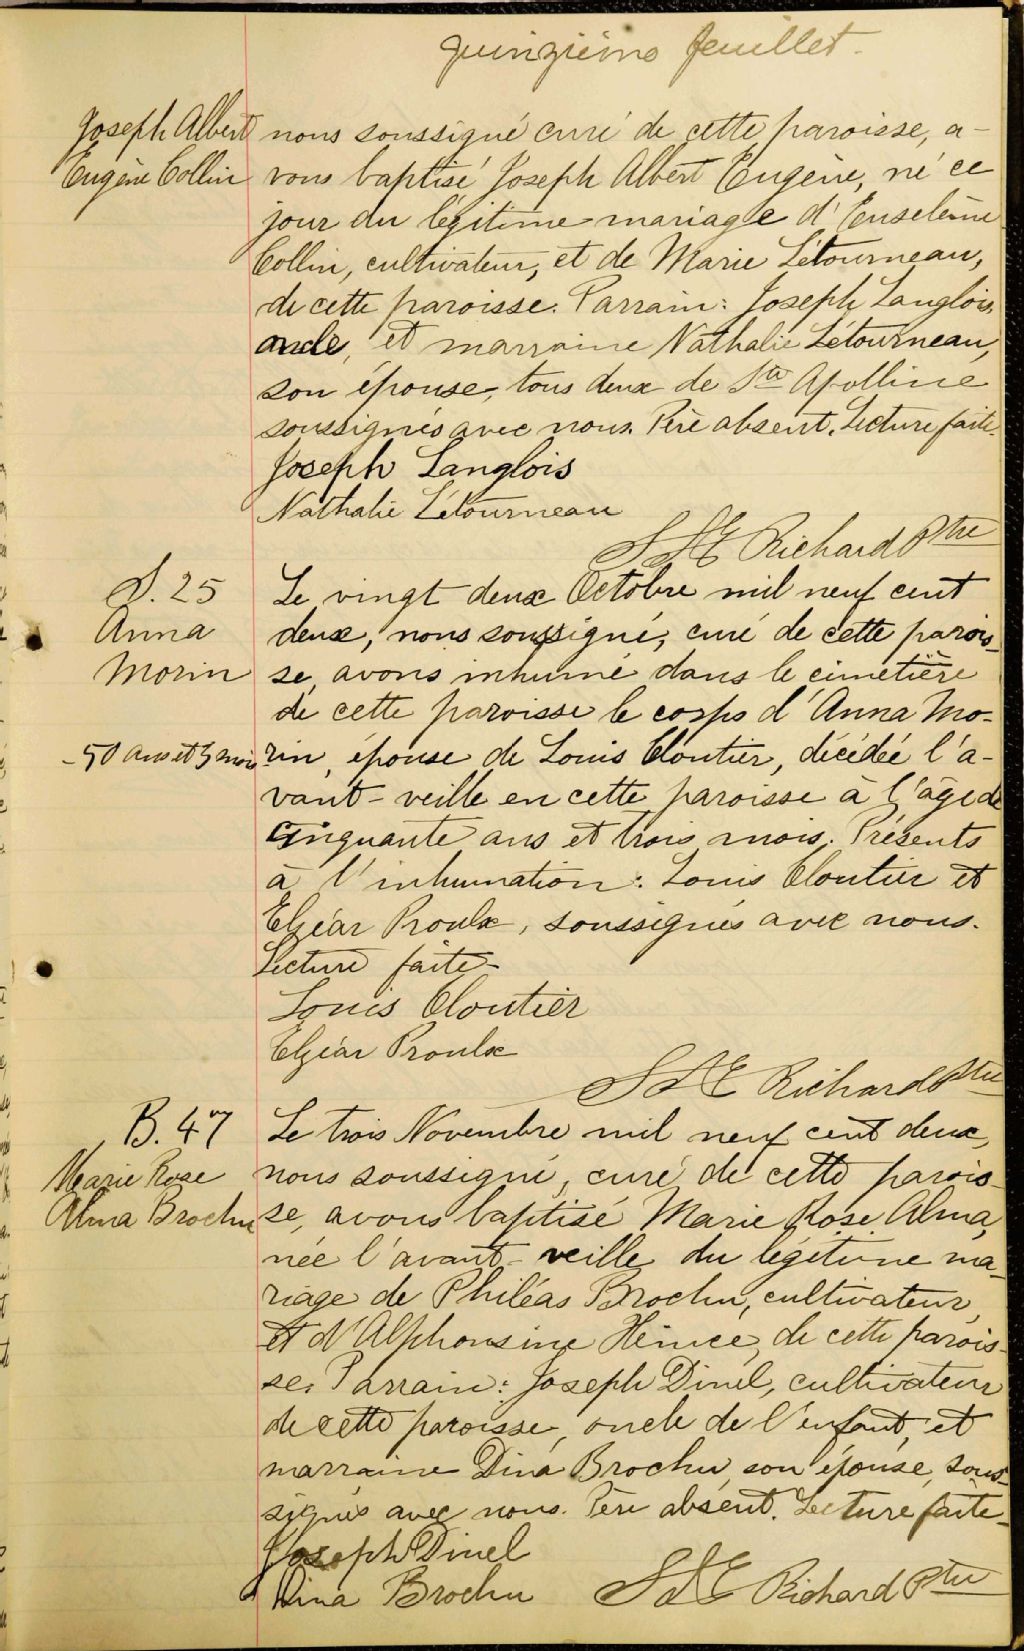 quinzième feuillet.
Joseph Albert
Eugène Collin
nous soussigné curé de cette paroisse, a-
vons baptisé Joseph Albert Eugène, né ce
jour du légitime mariage d'
Collin, cultivateur, et de Marie Létourneau,
de cette paroisse. Parrain: Joseph Langlois,
oncle, et marraine Nathalie Létourneau,
son épouse, tous deux de Ste Apolline
soussignés avec nous. Père absent. Lecture faite.
Joseph Langlois
Nathalie Létourneau
Richard Ptre
S. 25
Anna
Morin
- 50 ans et 3 mois
Le vingt deux Octobre mil neuf cent
deux, nous soussigné, curé de cette parois-
se, avons inhumé dans le cimetière
de cette paroisse le corps d'Anna Mo-
rin, épouse de Louis Cloutier, décédée l'a-
vant-veille en cette paroisse à l'âge de
cinquante ans et trois mois. Présents
à l'inhumation: Louis Cloutier et
Elzéar Proulx, soussignés avec nous.
Lecture faite
Louis Cloutier
Elzéar Proulx
Richard Ptre
B. 47
Marie Rose
Alma Brochu
Le trois Novembre mil neuf cent deux,
nous soussigné, curé de cette parois-
se, avons baptisé Marie Rose Alma,
née l'avant-veille du légitime ma-
riage de Philéas Brochu, cultivateur,
et d'Alphonsine de cette parois-
se. Parrain: Joseph Dinel, cultivateur
de cette paroisse, oncle de l'enfant, et
marraine Dina Brochu, son épouse, sous-
signés avec nous. Père absent. Lecture faite-
Joseph Dinel
Dina Brochu
Richard Ptre